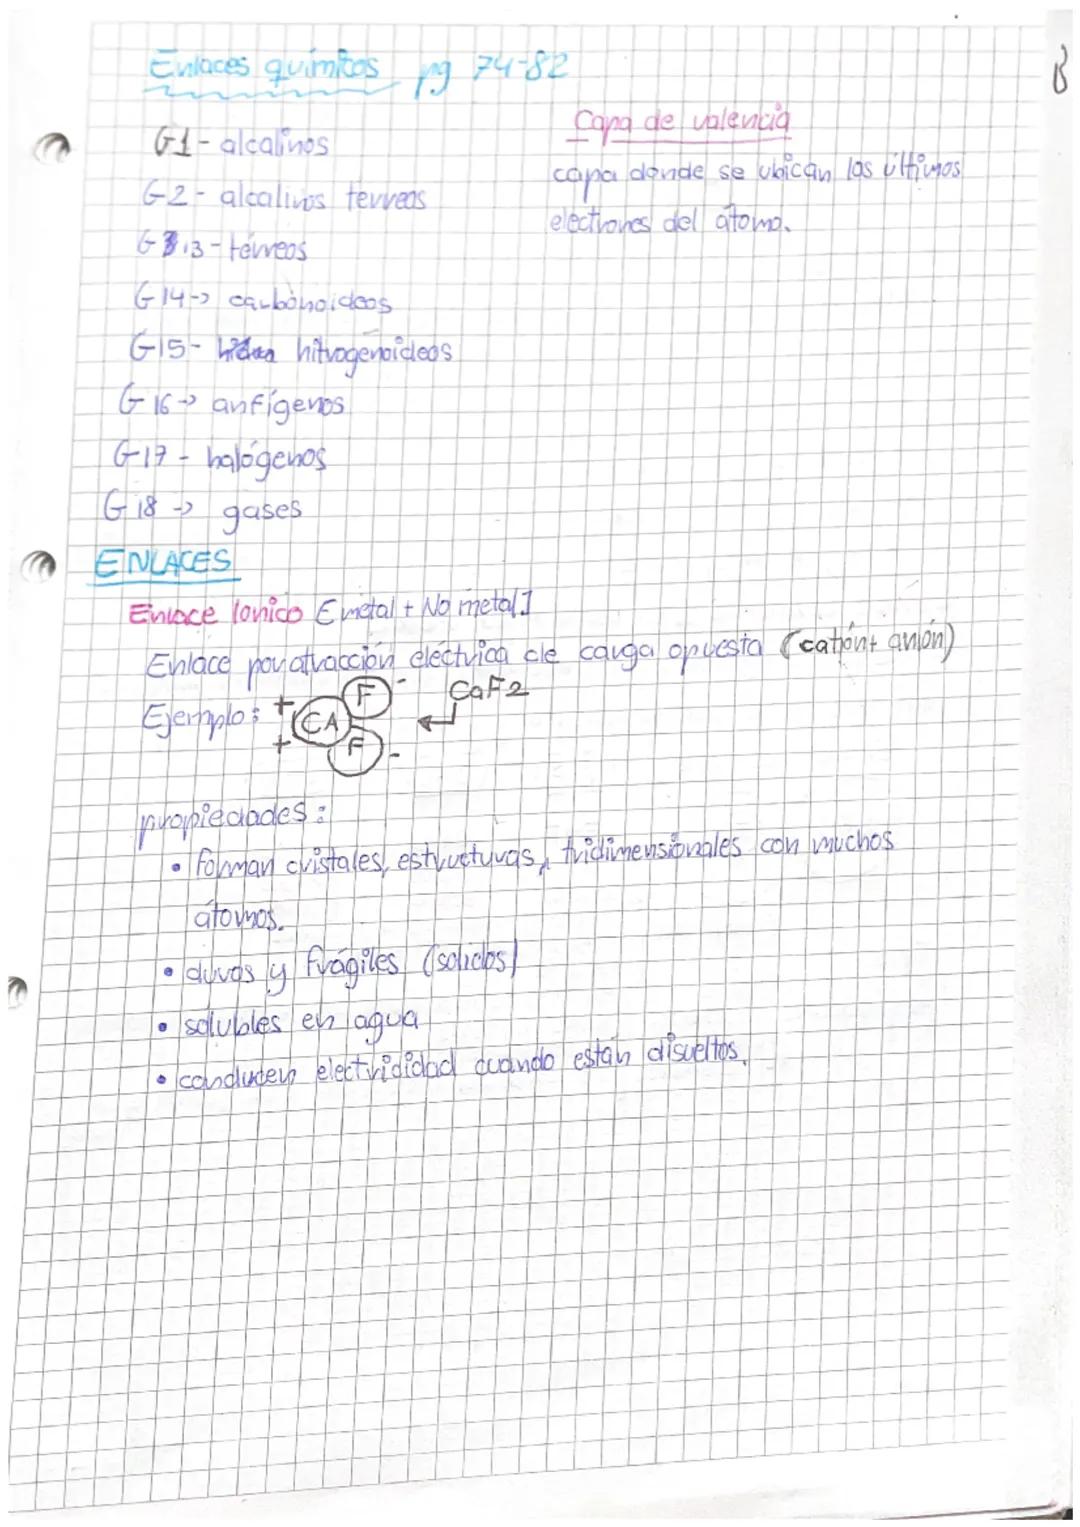 Enlaces químicos pg 74-82
B
G1 - alcalinos
G2 - alcalinos terreos
G 13 - térreos
G 14 -> carbonoideos
G15 - nitrogenoideos
G 16 -> anfígenos
G17 - halógenos
G 18 -> gases
Capa de valencia
capa donde se ubican los últimos
electrones del átomo.
ENLACES
Enlace Ionico [metal + No metal]
Enlace por atracción eléctrica de carga opuesta (catión + anión)
Ejemplo: + + CA F - F - CaF2
propiedades:
• forman cristales, estructuras, tridimensionales con muchos
átomos.
• duros y frágiles (solidos)
• solubles en agua
• conducen electrididad cuando están disueltos.